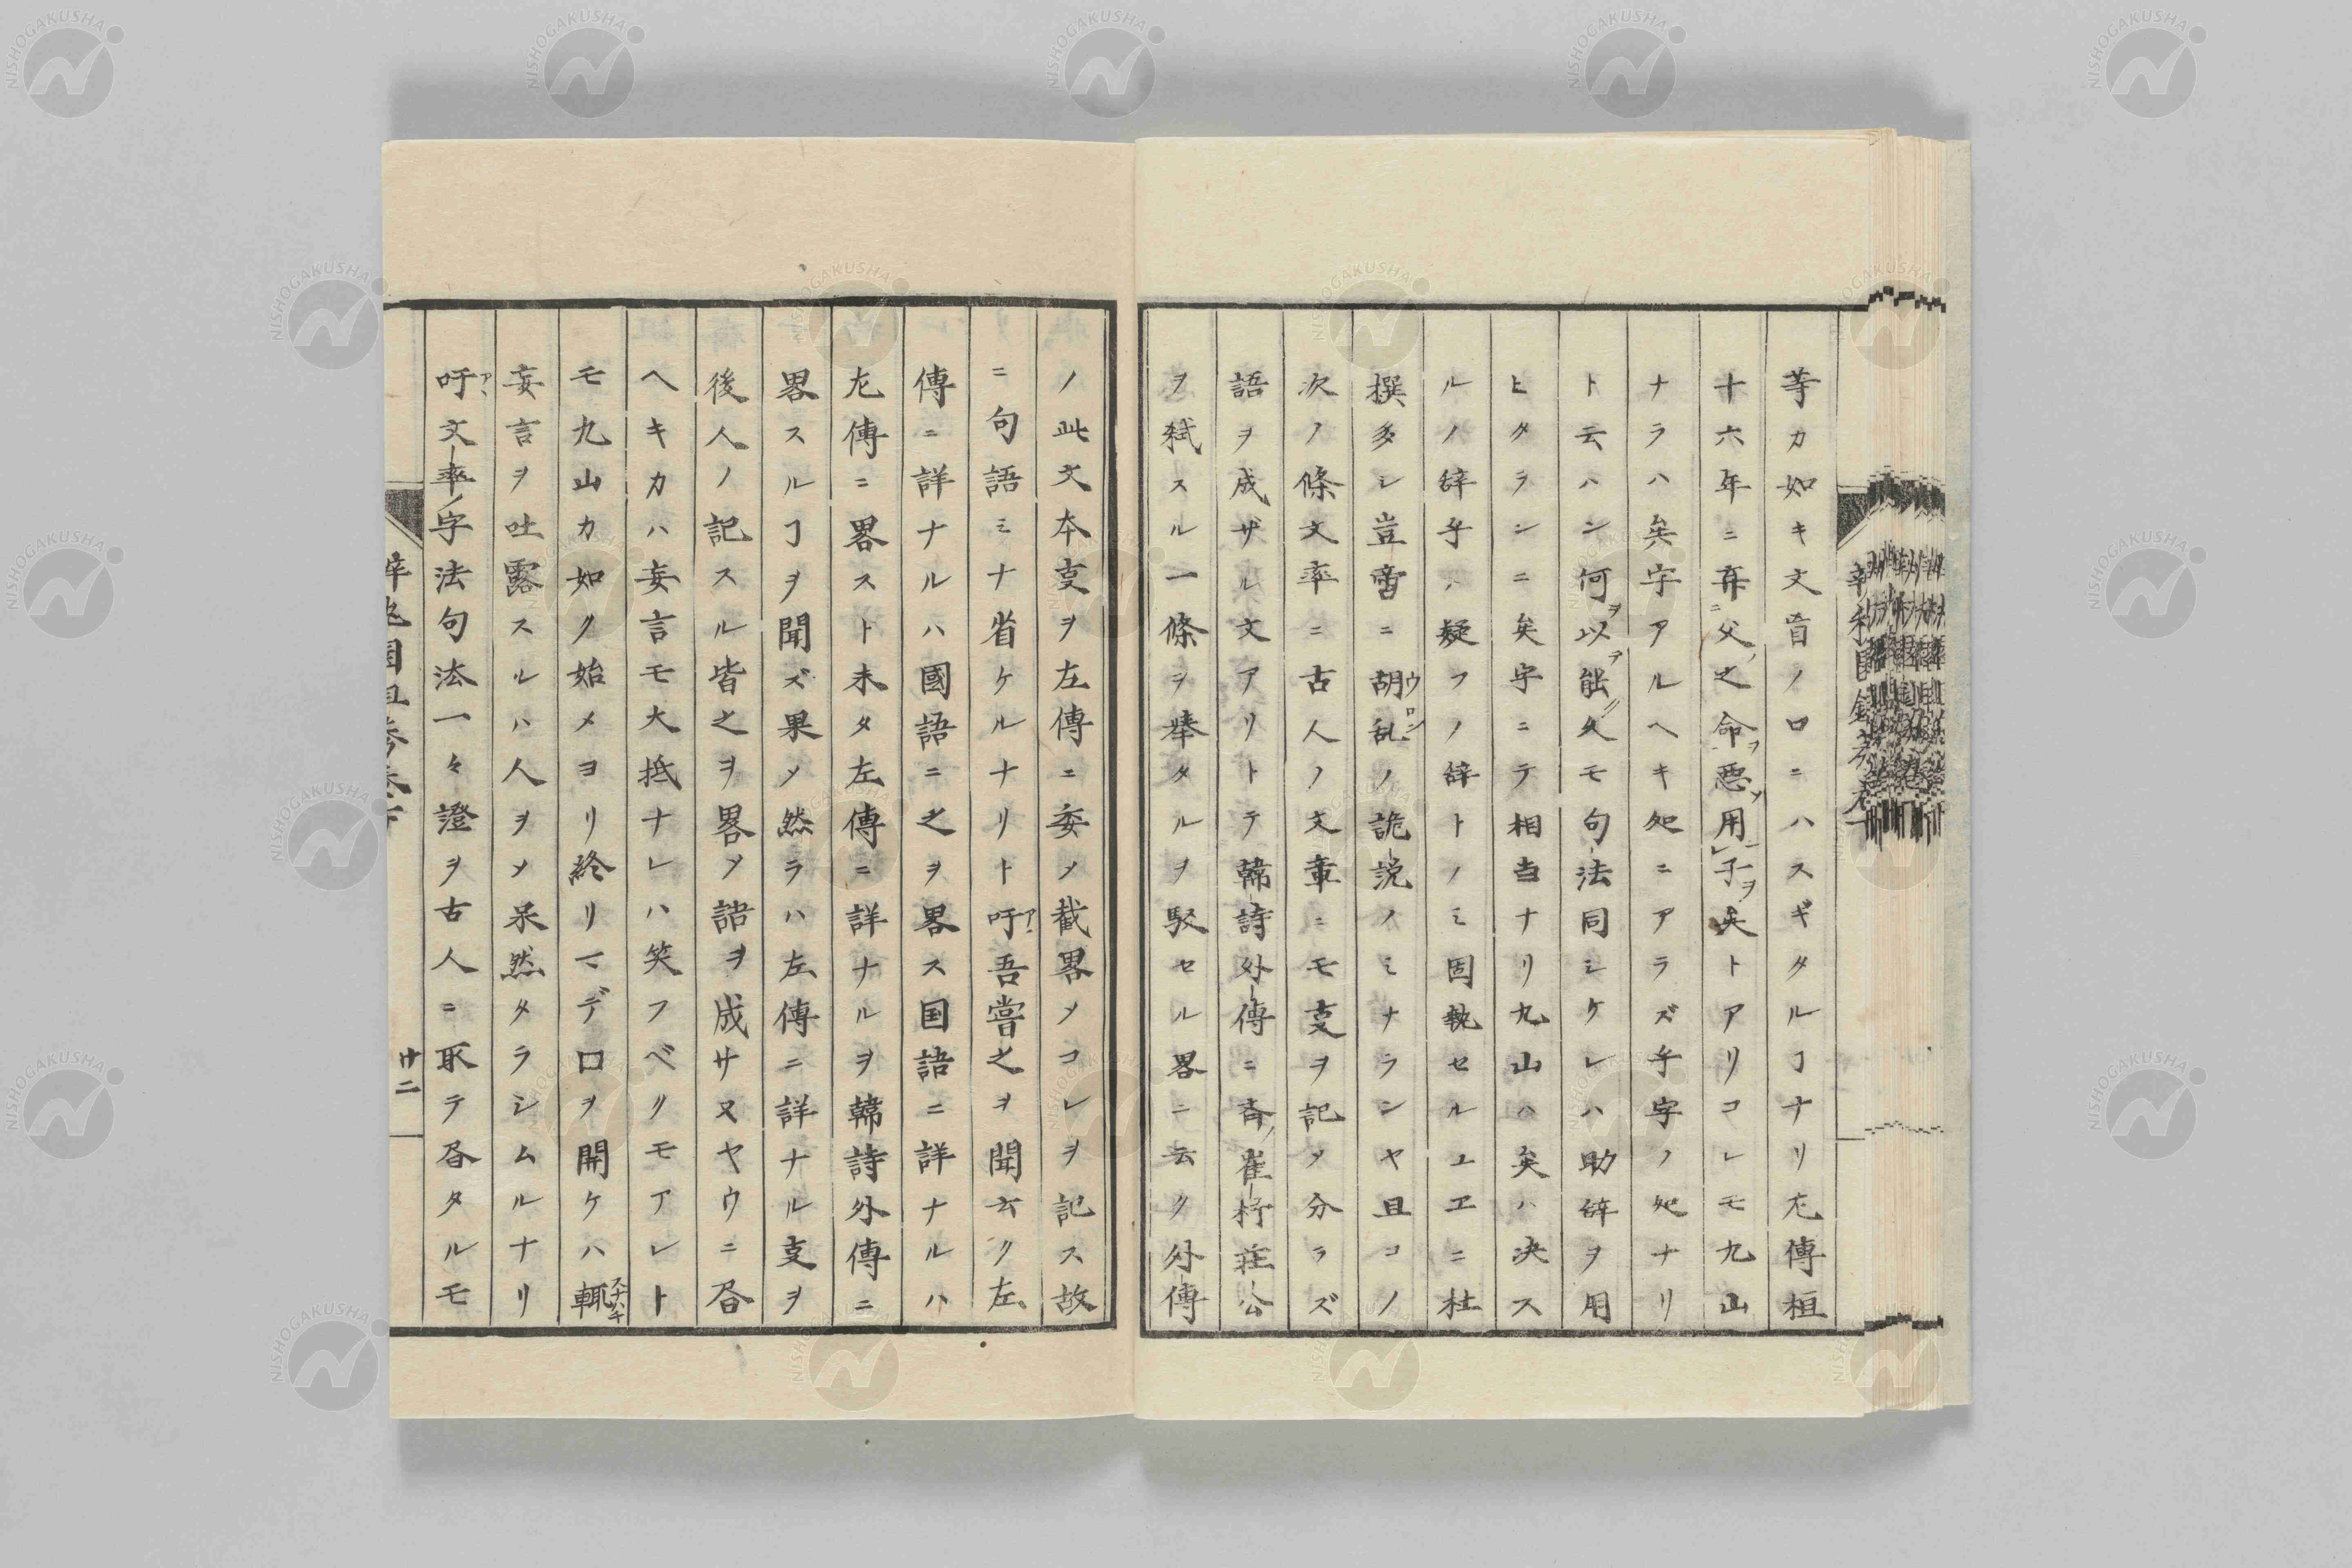 等カ如キ文盲ノロニハスギタルヿナリ左傳桓
十六年ニ弃ニ父ノ之命ヲ惡ソ用レ子ヲ矣トアリコレモ九山
ナラハ矣字アルヘキ処ニアラズ乎字ノ処ナリ
ト云ハン何ヲ以テ能久モ句法同シケレハ助辞ヲ用
ヒタランニ矣字ニテ相当ナリ九山ハ矣ハ决ス
ルノ辞乎ハ疑フノ辞トノミ固執セルユヱニ杜
撰多シ豈啻ニ胡乱ウロンノ詭説ノミナランヤ且コノ
次ノ條文率ニ古人ノ文章ニモ叓ヲ記メ分ラズ
語ヲ成ザル文アリトテ韓詩外傳ニ斉ノ崔杼荘公
ヲ弑スル一條ヲ挙タルヲ駁セル畧ニ云ク外傳
ノ此文本叓ヲ左傳ニ委メ截畧メコレヲ記ス故
ニ句語ミナ省ケルナリト吁アヽ吾嘗之ヲ聞云ク左
傳ニ詳ナルハ國語ニ之ヲ畧ス国語ニ詳ナルハ
左傳ニ畧スト未タ左傳ニ詳ナルヲ韓詩外傳ニ
畧スルヿヲ聞ズ果メ然ラハ左傳ニ詳ナル叓ヲ
後人ノ記スル皆之ヲ畧メ語ヲ成サヌヤウニ呑
ヘキカハ妄言モ大抵ナレハ笑フベクモアレト
モ九山カ如ク始メヨリ終リマデ口ヲ開ケハ輒スナハチ
妄言ヲ吐露スルハ人ヲメ呆然タラシムルナリ
吁アヽ文率ノ字法句法一々證ヲ古人ニ取テ呑タルモ
廿二